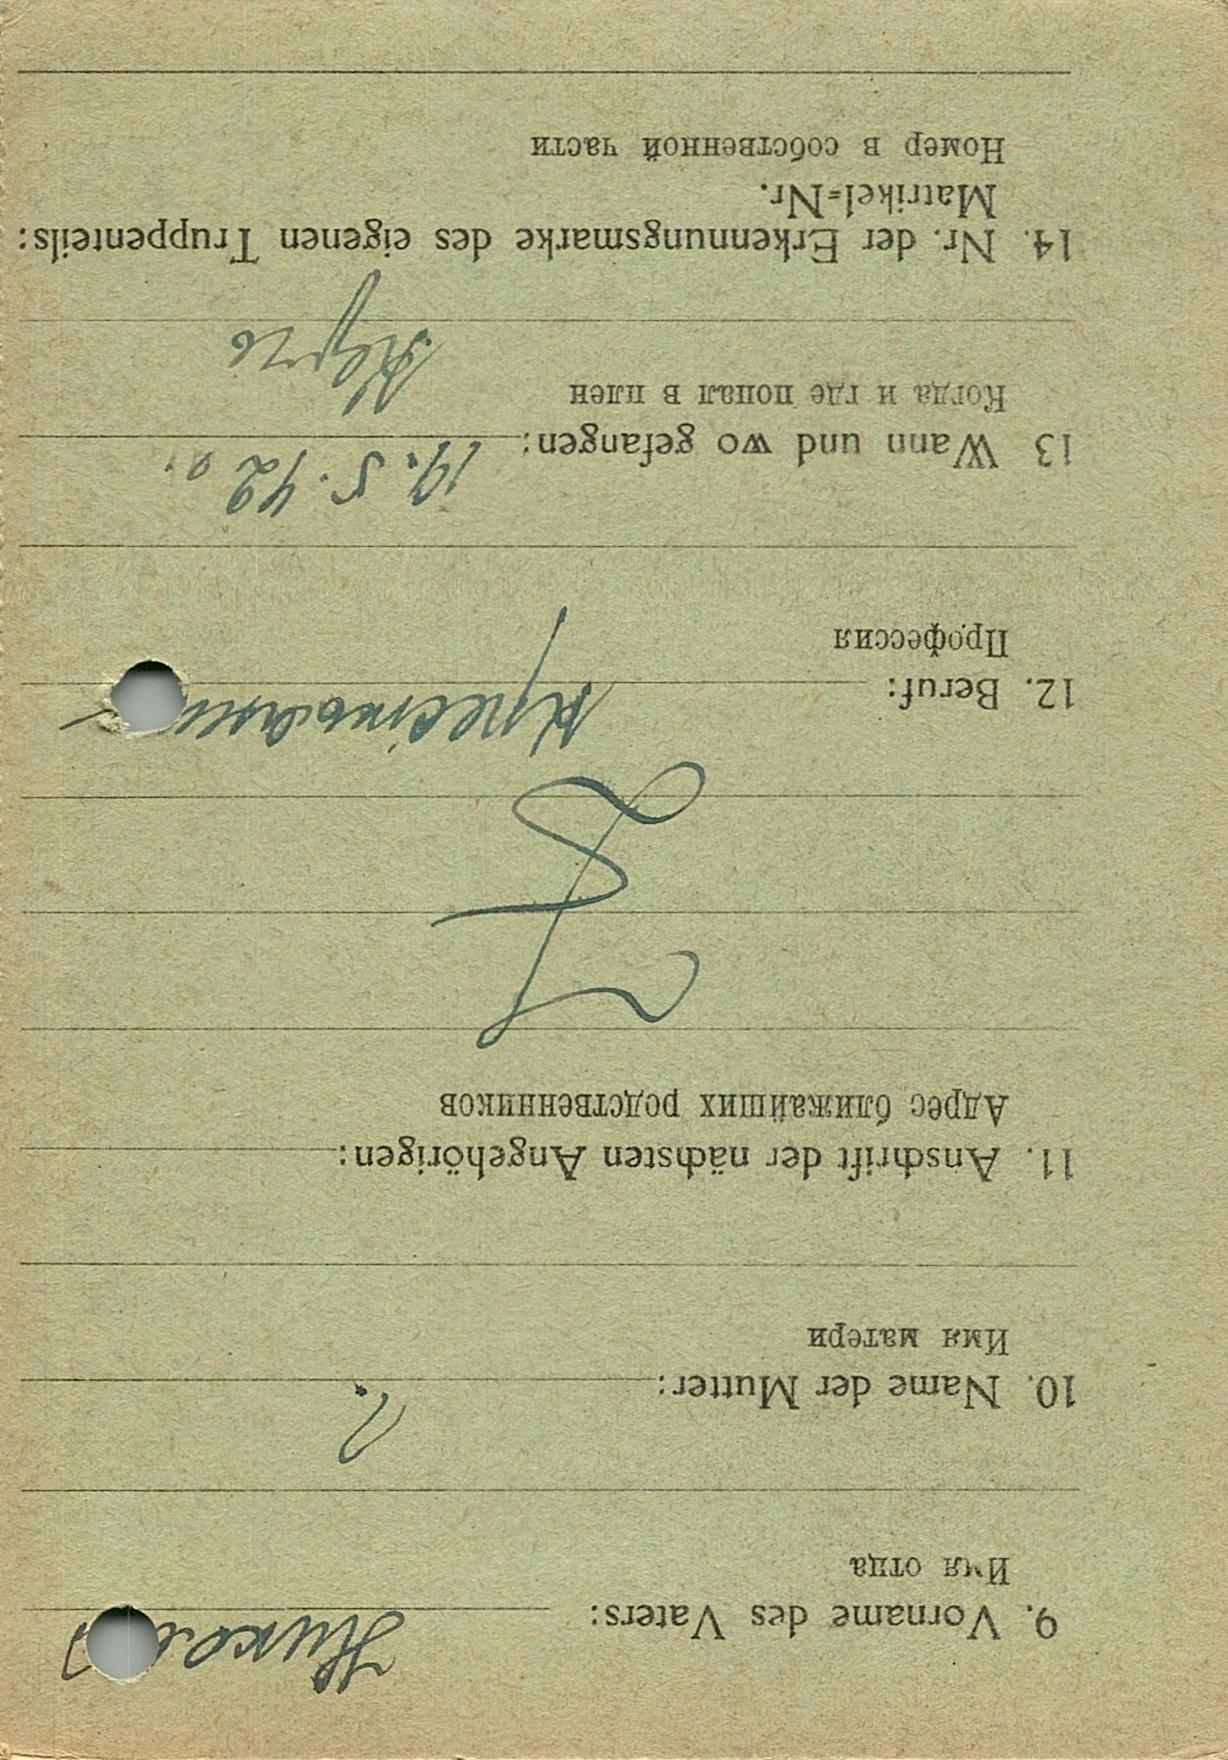 9. Vorname des Vaters: Никола
Имя отца
10. Name der Mutter: ?
Имя матери
11. Anschrift der nächsten Angehörigen:
Адрес ближайших родственников
12. Beruf:
Профессия
13 Wann und wo gefangen: 19. 5. 42
Когда и где попал в плен
14. Nr. der Erkennungsmarke des eigenen Truppenteils:
Matrikel=Nr.
Номер в собственной части